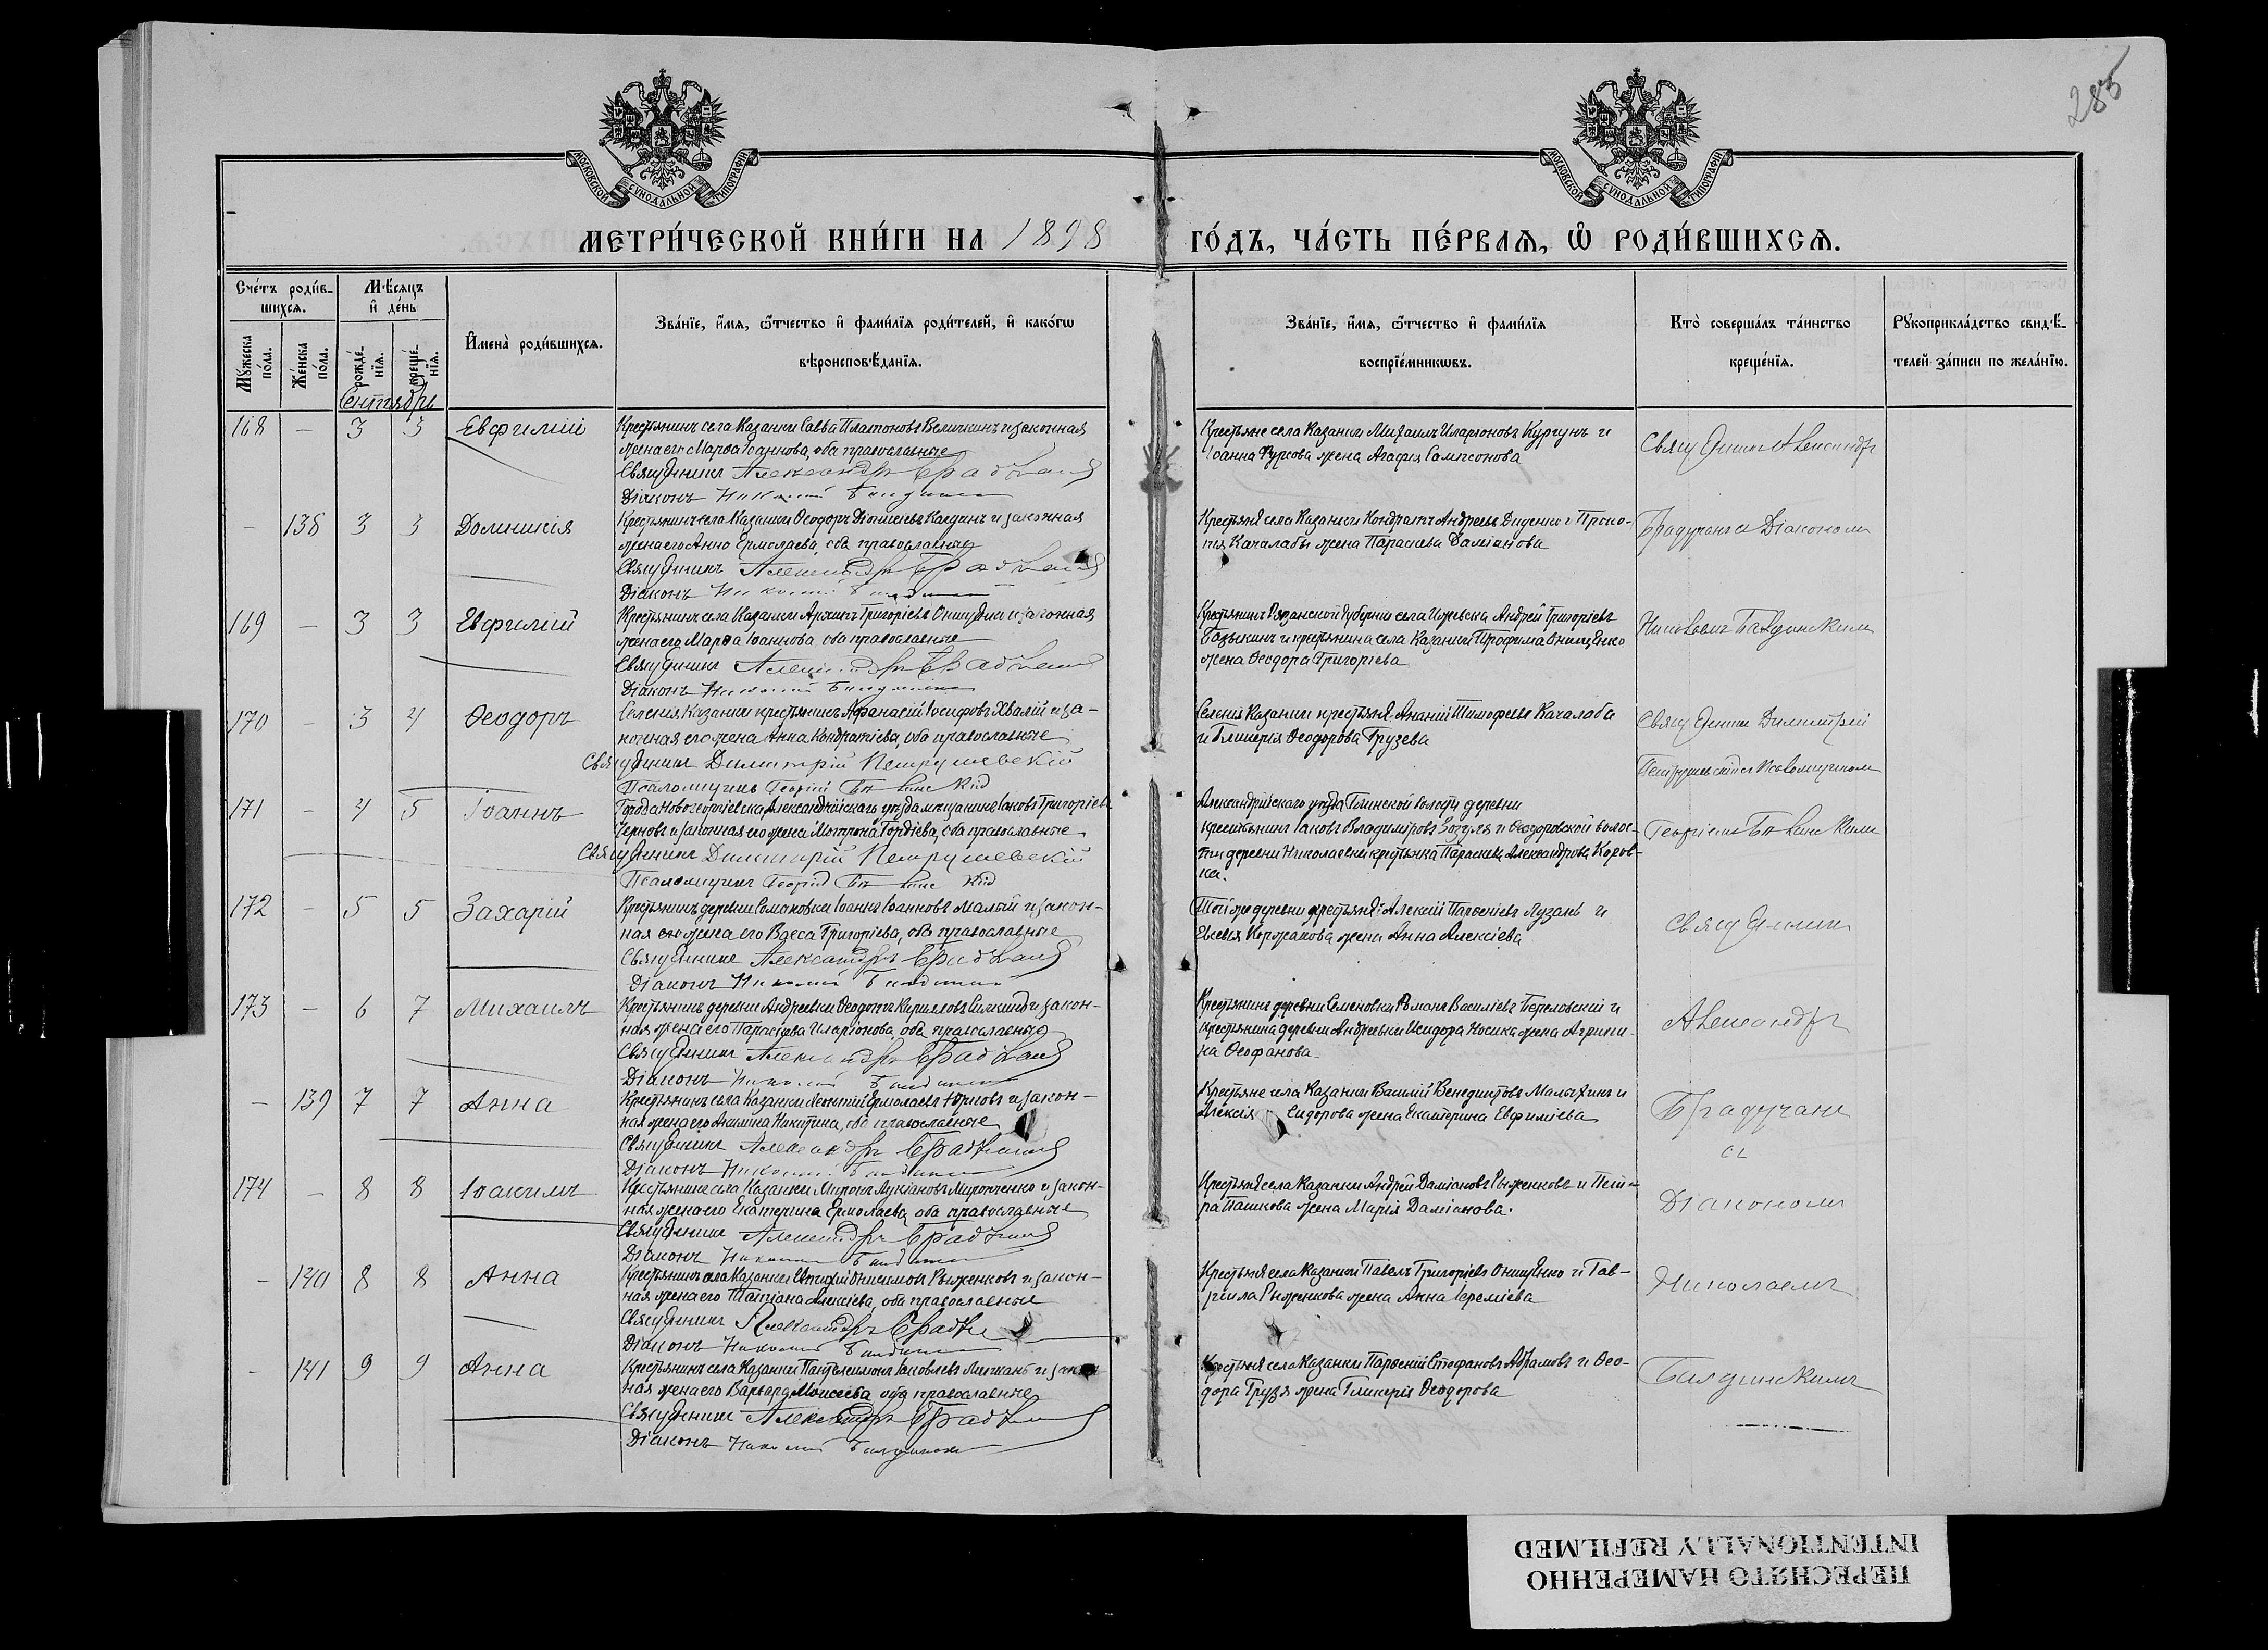 285
МОСКОВСКОЙ СѴНОДАЛЬНОЙ ТИПОГРАФІИ
МОСКОВСКОЙ СѴНОДАЛЬНОЙ ТИПОГРАФІИ
МЕТРИ́ЧЕСКОЙ КНИ́ГИ НА 1898 ГО́ДЪ, ЧА́СТЬ ПЕ́РВАЯ, Ѽ РОДИ́ВШИХСЯ.
Сче́тъ роди́в-
шихся.
Мꙋ́жеска по́ла.
Же́нска по́ла.
Мѣ́сяцъ
и҆ де́нь
рожде́-
нїя.
креще́-
нїя.
Сентябрь
И҆мена̀ роди́вшихся.
Зва́нїе, и҆́мя, ѻ҆́тчество и҆ фами́лїя роди́телей, и҆ како́гѡ
вѣроисповѣ́данїя.
Зва́нїе, и҆́мя, ѻ҆́тчество и҆ фами́лїя
воспрїе́мникѡвъ.
Кто̀ соверша́лъ та́инство
креще́нїя.
Рꙋкоприкла́дство свидѣ́-
телей за́писи по жела́нїю.
168 – 3 3 Евфимій
Крестьянинъ села Казанки Савва Платоновъ Величкинъ и законная
жена его Марѳа Іоаннова, оба православные
Священникъ Александръ
Діаконъ Николай
Крестьяне села Казанки Михаилъ Иларіоновъ Кургунъ и
Іоанна Фурсова жена Агафія Сампсонова
Священник Александръ
– 138 3 3 Домникія
Крестьянинъ села Казанки Ѳеодоръ Діонисіевъ Калдинъ и законная
жена его Анна Ермолаева, оба православные
Священникъ Александръ
Діаконъ Николай
Крестьяне села Казанки Кондратъ Андреевъ Диденко и Проко-
пія Качалабы жена Параскева Даміанова
Брадучанъ съ Діакономъ
169 – 3 3 Евфимій
Крестьянинъ села Казанки Архипъ Григоріевъ Онищенко и законная
жена его Марѳа Іоаннова, оба православные
Священникъ Александръ
Діаконъ Николай
Крестьянинъ Рязанской Губерніи села Ижевска Андрей Григоріевъ
и крестьянина села Казанки Трофима Онищенко
жена Ѳеодора Григоріева
170 – 3 4 Ѳеодоръ
Селенія Казанки крестьянинъ Афанасій Іосифовъ Хвалій и за-
конная его жена Анна Кондратіева, оба православные
Священникъ Димитрій Петрушевскій
Псаломщикъ Георгій
Селенія Казанки крестьяне: Ананій Тимофеевъ Качалаба
и Гликерія Ѳеодорова Грузева
Священник Димитрій
Петрушевскій съ Псаломщикомъ
171 – 4 5 Іоаннъ
Города Новогеоргіевска Александрійскаго уезда мещанинъ Іаковъ Григоріевъ
Черновъ и законная его жена Матрона Гордіева, оба православные
Священникъ Димитрій Петрушевскій
Псаломщикъ Георгій
Александрійскаго уезда Глинской волости деревни
крестьянинъ Іаковъ Владиміровъ Зозуля и Ѳеодоровской волос-
ти деревни Николаевки крестьянка Параскева Александрова Коров-
ка.
Георгіемъ
172 – 5 5 Захарій
Крестьянинъ деревни Іоаннъ Іоанновъ Малый и закон-
ная жена его Васса Григоріева, оба православные
Священникъ Александръ
Діаконъ Николай
Той же деревни крестьяне: Алексій Парѳеніевъ Лузанъ и
Евсевія Коржакова жена Анна Алексіева
Священник
173 – 6 7 Михаилъ
Крестьянинъ деревни Андреевки Ѳеодотъ Кирилловъ и закон-
ная жена его Параскева Иларіонова, оба православные
Священникъ Александръ
Діаконъ Николай
Крестьянинъ деревни Семеновки Романъ Василіевъ и
крестьянина деревни Андреевки Исидора Носика жена Агрипи-
на Ѳеофанова
Александръ
– 139 7 7 Анна
Крестьянинъ села Казанки Леонтій Ермолаевъ Юрковъ и закон-
ная жена его Акилина Никитина, оба православные
Священникъ Александръ
Діаконъ Николай
Крестьяне села Казанки Василій Венедиктовъ Малыхинъ и
Алексія Сидорова жена Екатерина Евфиміева
Брадучанъ
съ
174 – 8 8 Іоакимъ
Крестьянинъ села Казанки Миронъ Лукіановъ Миронченко и закон-
ная жена его Екатерина Ермолаева, оба православные
Священникъ Александръ
Діаконъ Николай
Крестьяне села Казанки Андрей Даміановъ Рыженковъ и Пет-
ра Пашкова жена Марія Даміанова.
Діакономъ
– 140 8 8 Анна
Крестьянинъ села Казанки Онисимовъ Рыженковъ и закон-
ная жена его Татіана Алексіева, оба православные
Священникъ Александръ
Діаконъ Николай
Крестьяне села Казанки Павелъ Григоріевъ Онищенко и Гав-
риила Рыженкова жена Анна Іереміева
Николаемъ
– 141 9 9 Анна
Крестьянинъ села Казанки Пантелеимонъ Іаковлевъ и закон-
ная жена его Варвара Моисеева, оба православные
Священникъ Александръ
Діаконъ Николай
Крестьяне села Казанки Парѳеній Стефановъ Абрамовъ и Ѳео-
дора Грузя жена Гликерія Ѳеодорова
ПЕРЕСНЯТО НАМЕРЕННО
INTENTIONALLY REFILMED